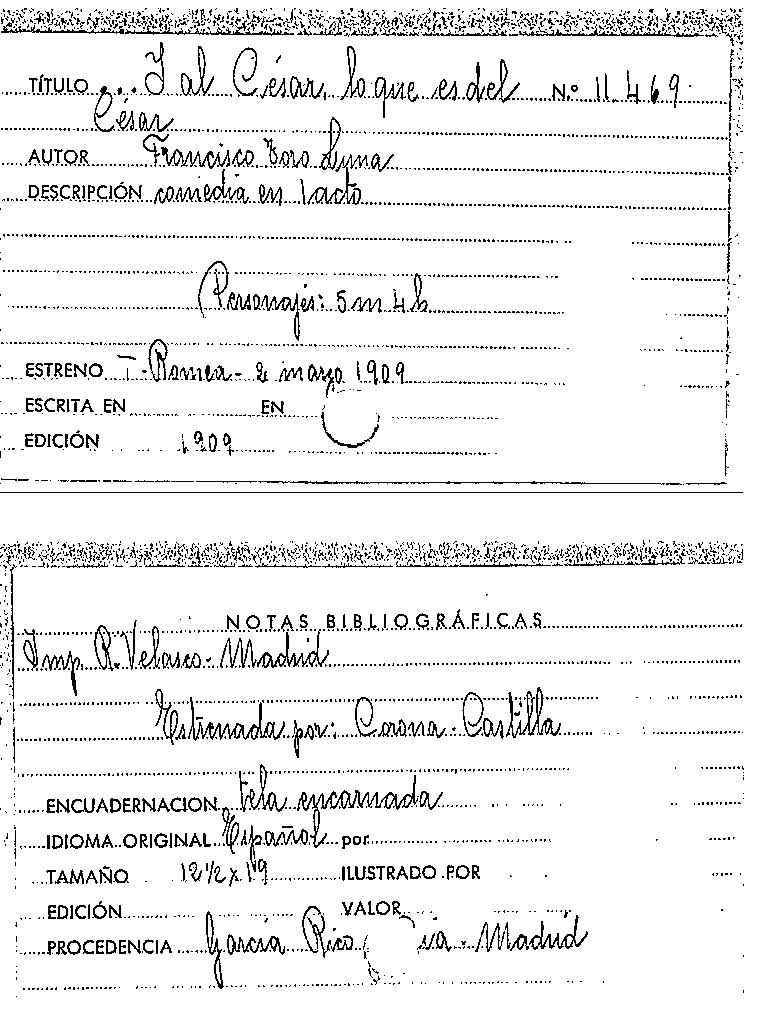 TÍTULO ... Y al César, lo que es del N.º 11.469
César
AUTOR Francisco Toro Luna
DESCRIPCIÓN comedia en 1 acto
Personajes: 5 m 4 h
ESTRENO T. Romea - 2 marzo 1909
ESCRITA EN EN
EDICIÓN 1909
NOTAS BIBLIOGRÁFICAS
Imp. R. Velasco - Madrid
Estrenada por: Corona - Castilla
ENCUADERNACION tela encarnada
IDIOMA ORIGINAL Español por
TAMAÑO 12 1/2 x 19 ILUSTRADO POR
EDICIÓN VALOR
PROCEDENCIA García Rico Madrid